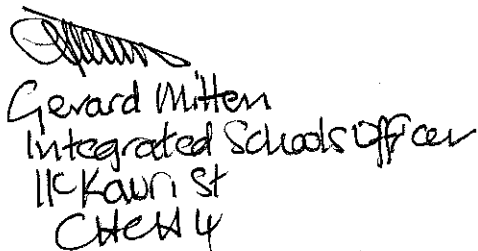 Gerard Mitten
Integrated Schools Officer
11c Kauri St
CHCH 4